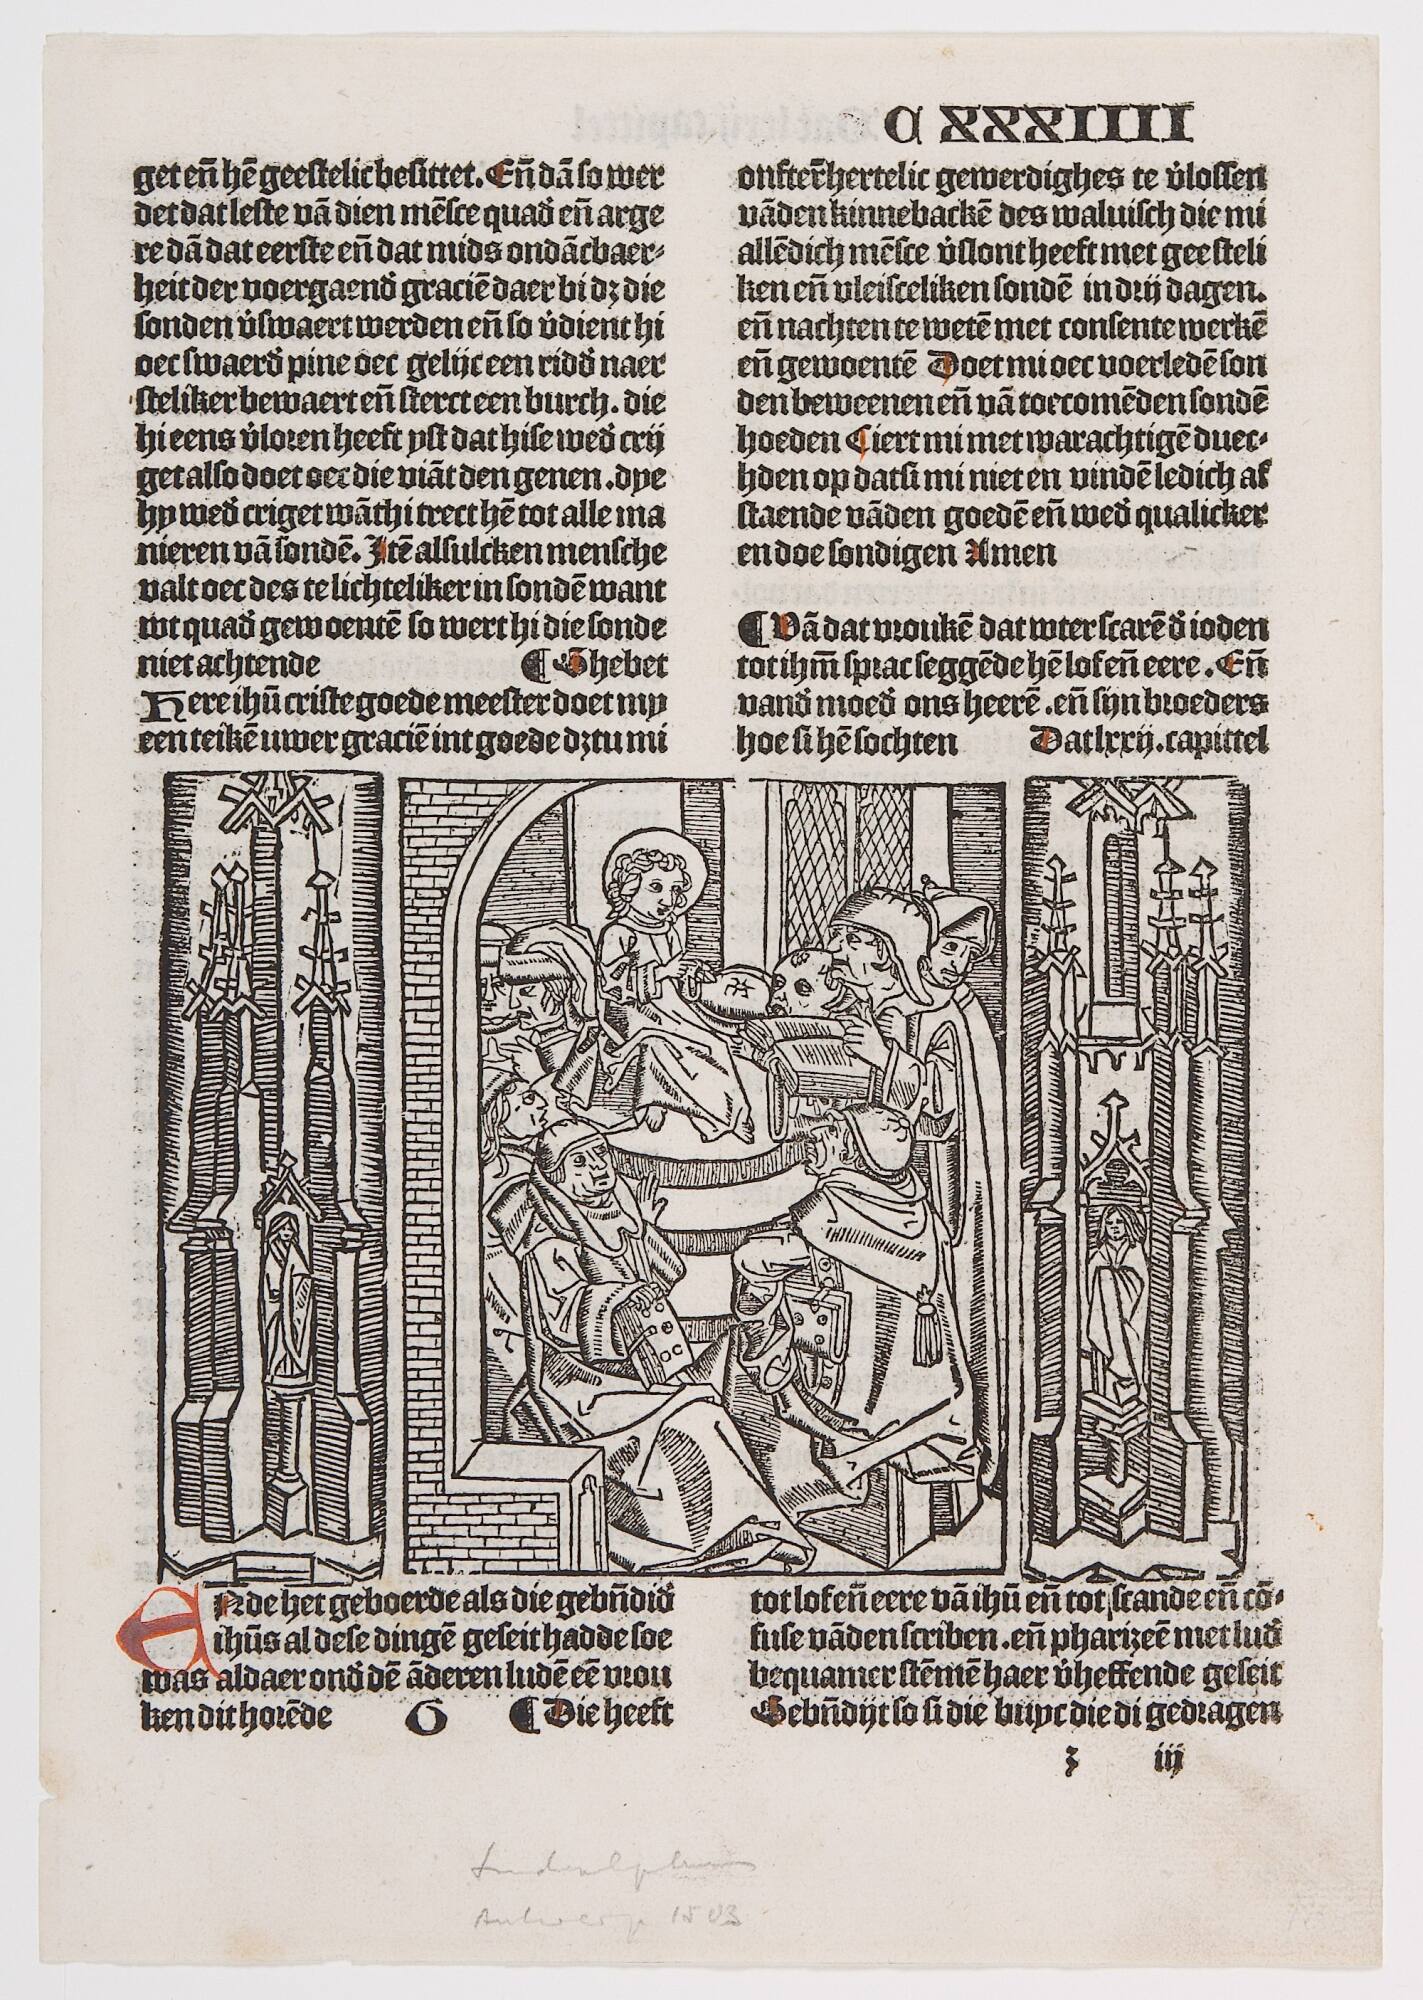 C XXXIIIII
get en̄ hē geestelic besittet. En̄ dā so wer
det dat leste vā dien mēsce quad̕ en̄ arge
re dā dat eerste en̄ dat mids ondācbaer⸗
heit der voergaend̕ graciē daer bi dꝫ die
sonden v̕swaert werden en̄ so v̕dient hi
oec swaerd̕ pine oec gelijc een ridd̕ naer
steliker bewaert en̄ sterct een burch. die
hi eens v̕loren heeft yst dat hise wed̕ crij
get also doet oec die viāt den genen. dye
hy wed̕ criget wāt hi trect hē tot alle ma
nieren vā sondē. Itē alsulcken mensche
valt oec des te lichteliker in sondē want
wt quad̕ gewoentē so wert hi die sonde
niet achtende ¶ Ghebet
Here ihū criste goede meester doet my
een teikē uwer graciē int goede dꝫtu mi
onfterēhertelic gewerdighes te v̕lossen
vādenkinnebackē des walvisch die mi
allēdich mēsce v̕slont heeft met geesteli
ken en̄ vleisceliken sondē in drij dagen.
en̄ nachten te wetē met consente werkē
en̄ gewoentē Doet mi oec voerledē son
den beweenen en̄ vā toecomēden sondē
hoeden Ciert mi met warachtigē duec⸗
hden op dat si mi niet en vindē ledich af
staende vāden goedē en̄ wed̕ qualicker
en doe sondigen Amen
¶ Vā dat vroukē dat wter scarē d̕ ioden
tot ihm̄ sprac seggēde hē lof en̄ eere. En̄
vand̕ moed̕ ons heerē. en̄ sijn broeders
hoe si hē sochten Dat lxxij. capittel
ENde het geboerde als die gebn̄did̕
ihūs al dese dingē geseit hadde soe
was aldaer ond̕ dē āderen ludē eē vrou
ken dit horēde G ¶ Die heeft
tot lof en̄ eere vā ihū en̄ tot scande en̄ cō⸗
fuse vāden scriben. en̄ pharizeē met lud̕
bequamer stēmē haer v̕heffende geseit
Gebn̄dijt so si die buyc die di gedragen
z iij
Antwerp 1503